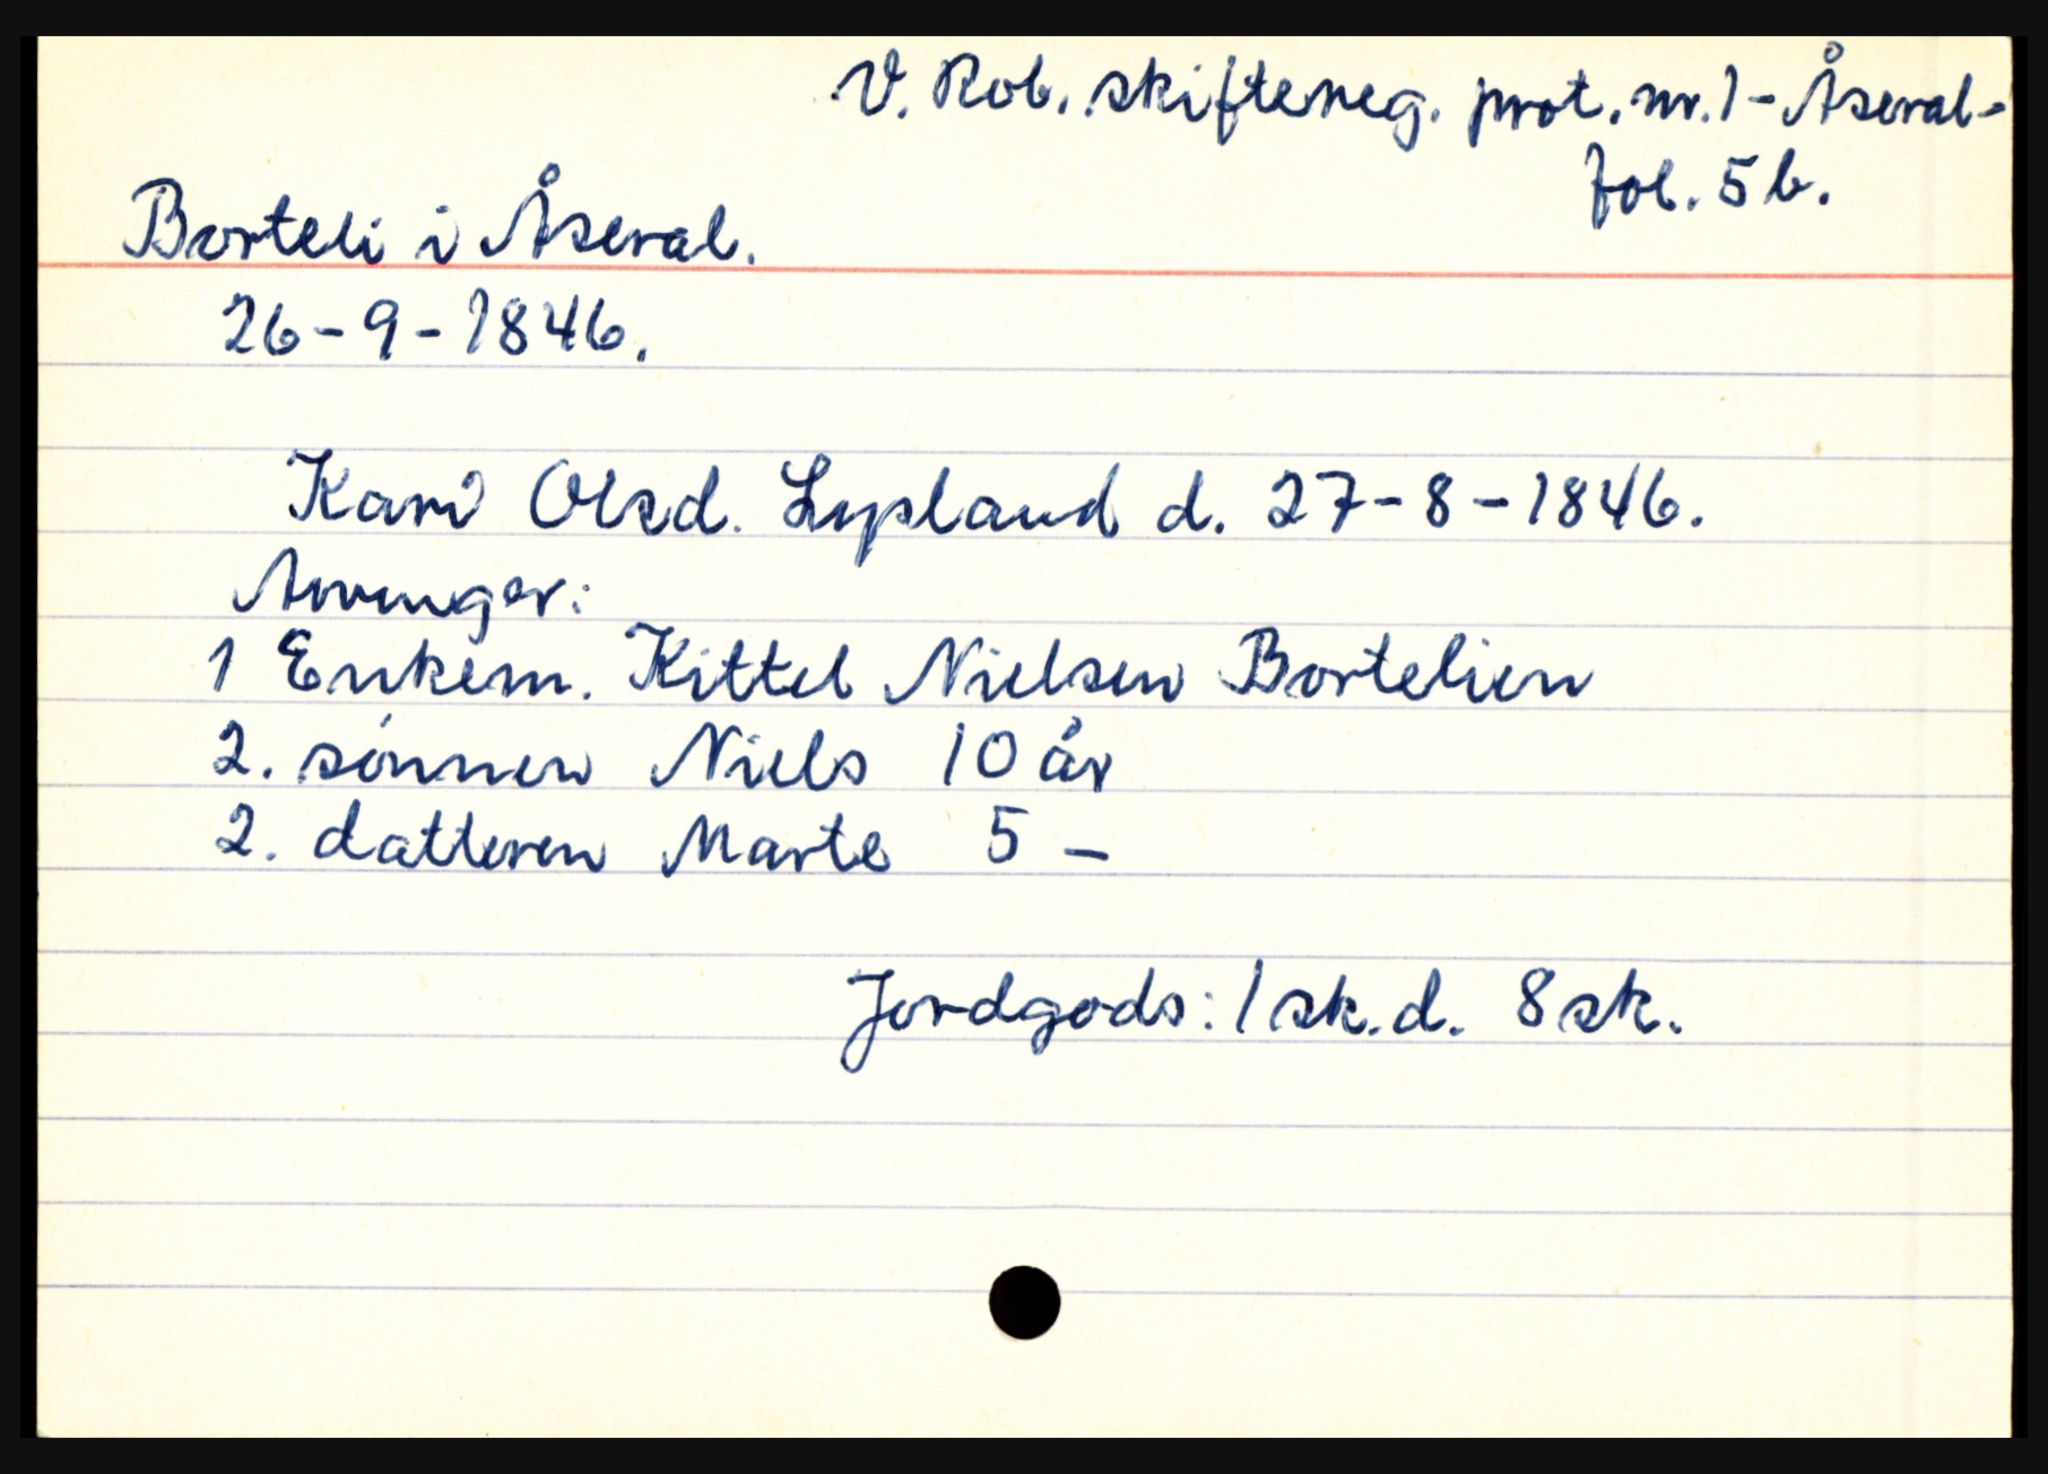 V. Rob. skiftereg. prot. nr. 1 - Åseral -
fol. 5 b.
Borteli i Åseral.
26-9-1846.
Kari Olsd. Lypland d. 27-8-1846.
Arvinger:
1 Enkem. Kittel Nielsen Bortelien
2. sønnen Niels 10 år
2. datteren Marte 5 -
Jordgods: 1 sk.d. 8 sk.